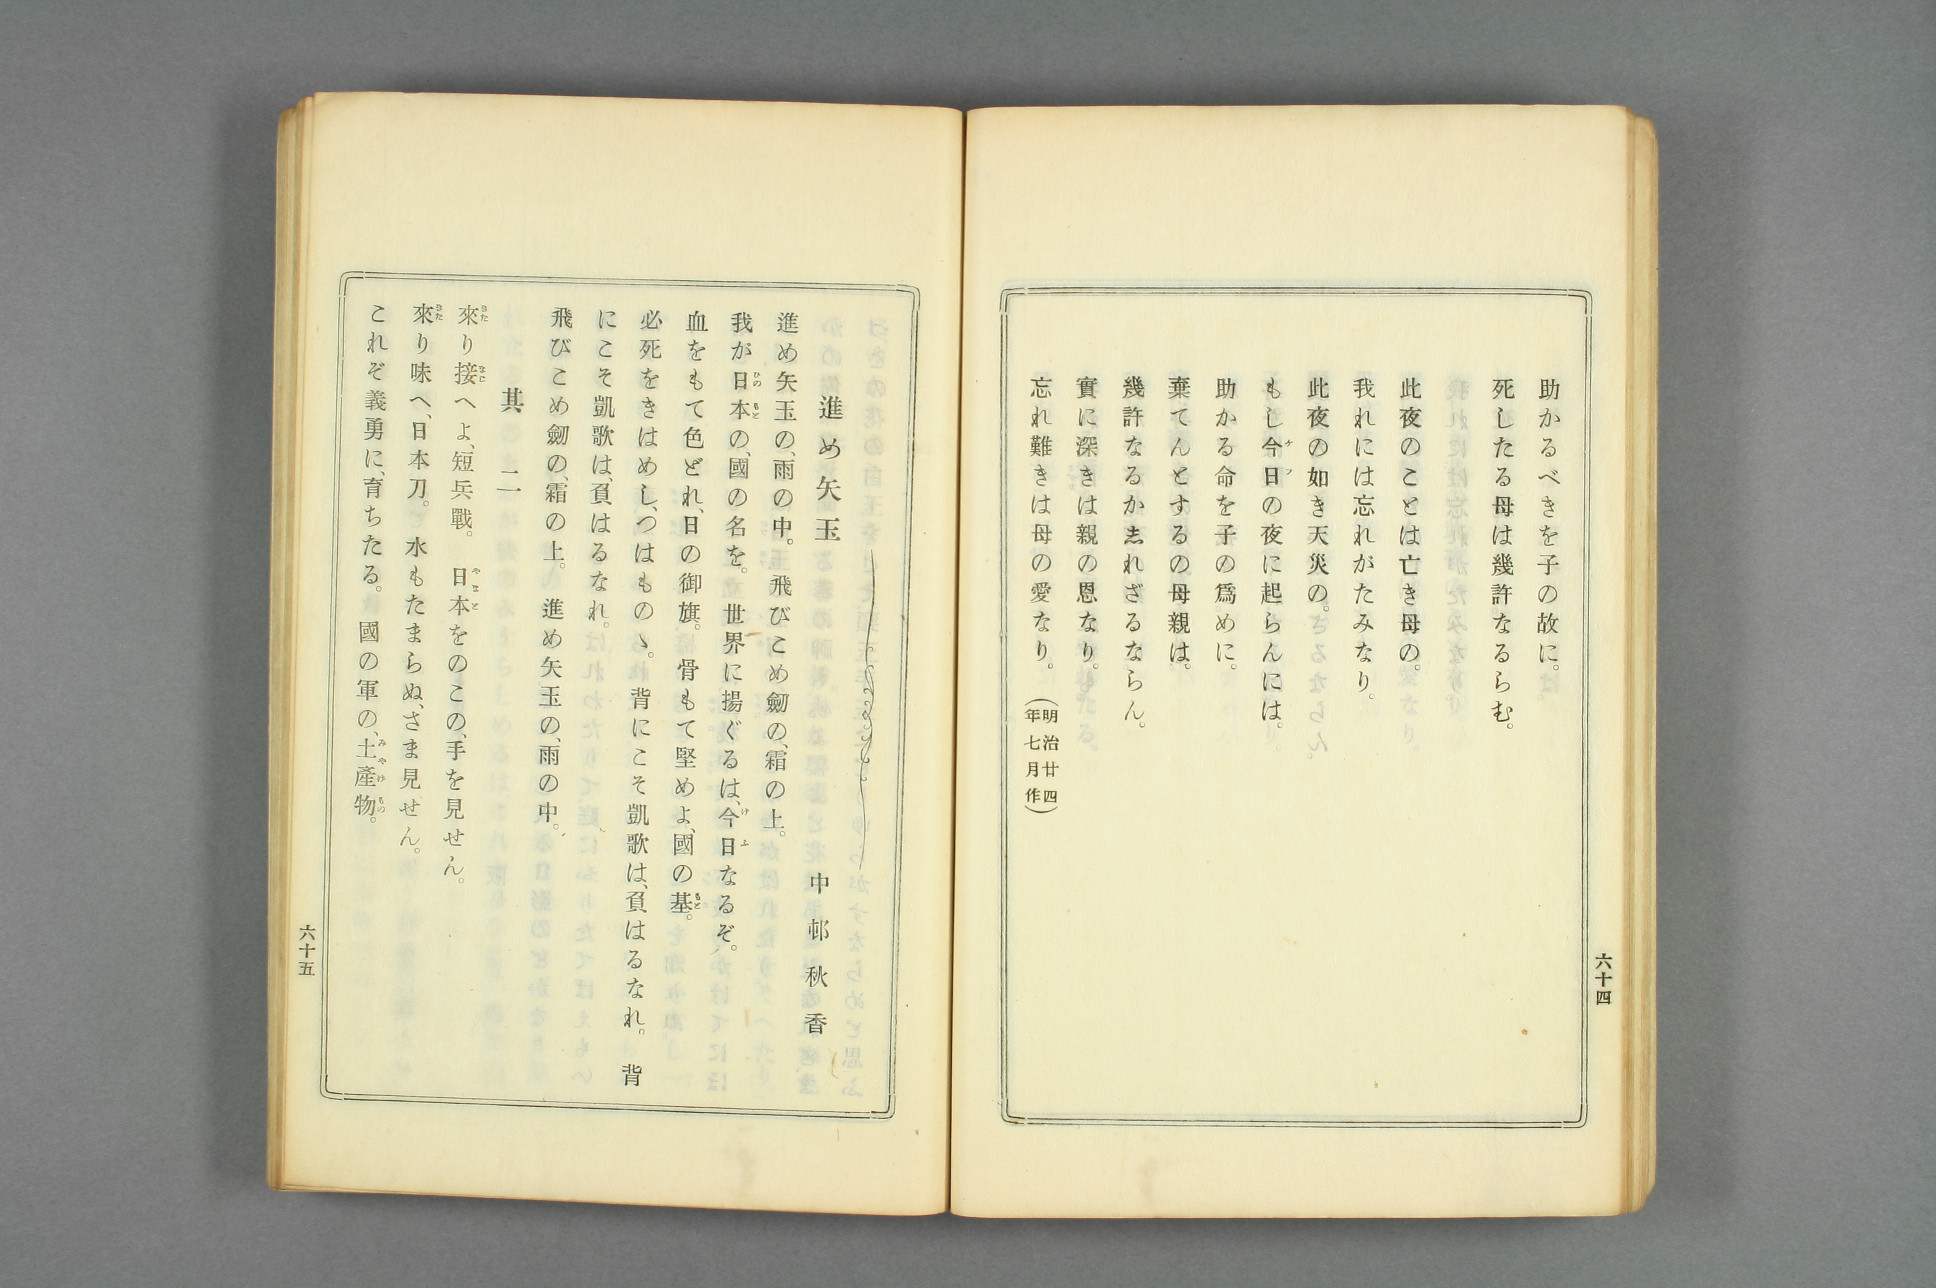 助かるべきを子の故に。
死したる母は幾許なるらむ。
此夜のことは亡き母の。
我れには忘れがたみなり。
此夜の如き天災の。
もし今日の夜に起らんには。
助かる命を子の爲めに。
棄てんとするの母親は。
幾許なるか志れざるならん。
實に深きは親の恩なり。
忘れ難きは母の愛なり。
(明治廿四年七月作)
六十四
進め矢玉
中邨秋香
進め矢玉の、雨の中。 飛びこめ劒の、霜の上。
我が日本の、國の名を。 世界に揚ぐるは、今日なるぞ。
血をもて色どれ、日の御旗。 骨もて堅めよ、國の基。
必死をきはめし、つはものゝ。 背にこそ凱歌は、負はるなれ。 背
にこそ凱歌は、負はるなれ。
飛びこめ劒の、霜の上。 進め矢玉の、雨の中。
其二
來り接へよ、短兵戰。 日本をのこの、手を見せん。
來り味へ、日本刀。 水もたまらぬ、さま見せん。
これぞ義勇に、育ちたる。 國の軍の、土產物。
六十五